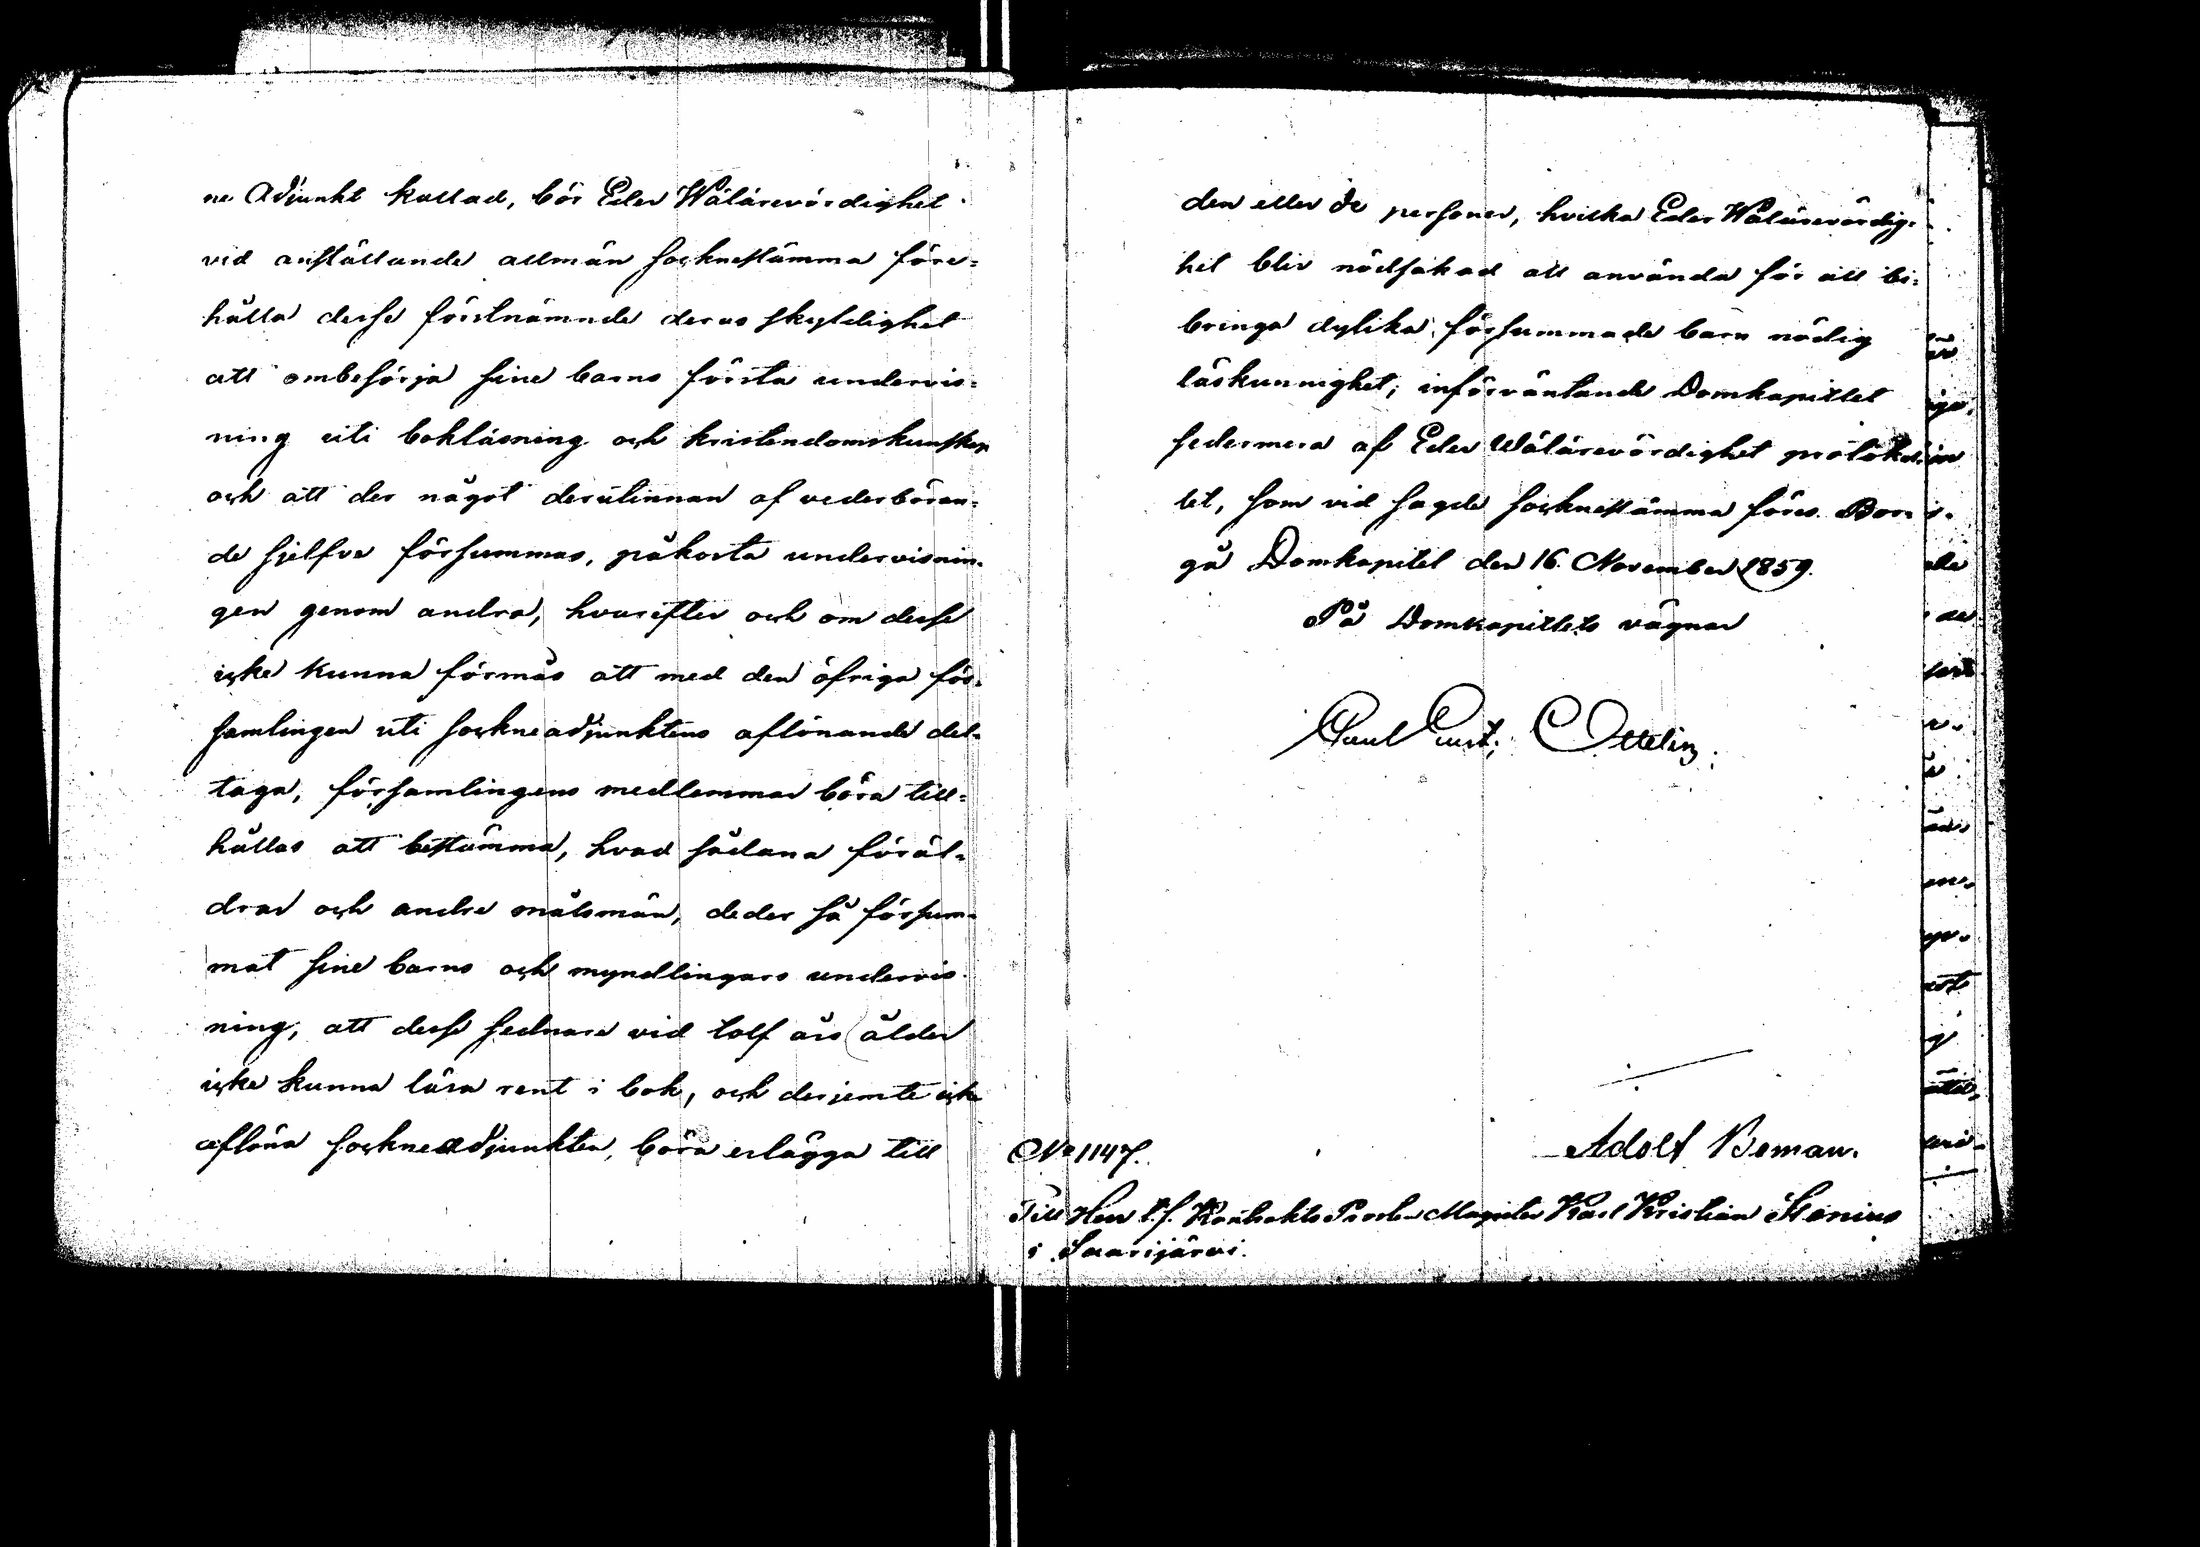 ne Adjunkt kallad, bör Eder Wälärevördighet
vid anställande allmän socknestämma före-
hålla desse förstnämnde deras skyldighet
att ombesörja sine barns första undervis-
ning uti bokläsning och kristendomskunskap
och att der något derutinnan af vederböran-
de sjelfve försummas, påkosta undervisnin-
gen genom andra, hvarefter och om desse
icke kunna förmås att med den öfriga för-
samlingen uti sockneadjunktens aflönande del-
taga, församlingens medlemmar böra till-
hållas att bestämma, hvad sådana föräl-
drar och andre målsmän, deder så försum-
mat sine barns och myndlingars undervis
ning, att desse sednare vid tolf års ålder
icke kunna läsa rent i bok, och derjemte icke
aflöna sockneadjunkten, böra erlägga till
den eller de personer, hvilka Eder Wälärevördig-
het blir nödsakad att använda för att bi-
bringa dylika försummade barn nödig
läskunnighet; införväntande Domkapitlet
sedermera af Eder Wälärevördighet protokol-
let, som vid sagde socknestämma föres. Bor-
gå Domkapitel den 16 November 1859.
På Domkapitlets vägnar
Carl Gust. Ottelin
Adolf Boman.
No 1147.
Till Herr t.f. Kontrakts Prosten Magister Karl Kristian Stenius
i Saarijärvi.